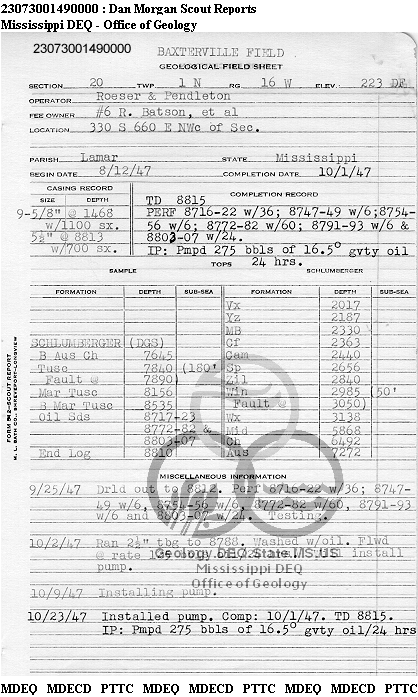 23073001490000 : Dan Morgan Scout Reports
Mississippi DEQ - Office of Geology
23073001490000
BAXTERVILLE FIELD
GEOLOGICAL FIELD SHEET
SECTION 20 TWP. 1 N RG. 16 W ELEV. 223 DF
OPERATOR Roeser & Pendleton
FEE OWNER #6 R. Batson, et al
LOCATION 330 S 660 E NWc of Sec.
PARISH Lamar STATE Mississippi
BEGIN DATE 8/12/47 COMPLETION DATE 10/1/47
CASING RECORD COMPLETION RECORD
SIZE DEPTH TD 8815
9-5/8" @ 1468 PERF 8716-22 w/36; 8747-49 w/6;8754-
w/1100 sx. 56 w/6; 8772-82 w/60; 8791-93 w/6 &
5½" @ 8813 8803-07 w/24.
w/700 sx. IP: Pmpd 275 bbls of 16.5° gvty oil
24 hrs.
SAMPLE TOPS SCHLUMBERGER
FORMATION DEPTH SUB-SEA FORMATION DEPTH SUB-SEA
Vx 2017
Yz 2187
MB 2330
SCHLUMBERGER (DGS) Cf 2363
B Aus Ch 7645 Cam 2440
Tusc 7840 (180' Sp 2656
Fault @ 7890) Zil 2840
Mar Tusc 8156 Win 2985 (50'
B Mar Tusc 8535 Fault @ 3050)
Oil Sds 8717-23 Wx 3138
8772-82 & Mid 5868
8803-07 Ch 6492
End Log 8810 Aus 7272
FORM SM2-SCOUT REPORT
M. L. BATH CO., SHREVEPORT-LONGVIEW
MISCELLANEOUS INFORMATION
9/25/47 Drld out to 8812. Perf 8716-22 w/36; 8747-
49 w/6, 8754-56 w/6, 8772-82 w/60, 8791-93
w/6 and 8803-07 w/24. Testing.
10/2/47 Ran 2½" tbg to 8788. Washed w/oil. Flwd
@ rate install
pump.
Geology.DEQ.State.MS.US
Mississippi DEQ
Office of Geology
10/9/47 Installing pump.
10/23/47 Installed pump. Comp: 10/1/47. TD 8815.
IP: Pmpd 275 bbls of 16.5° gvty oil/24 hrs
MDEQ MDECD PTTC MDEQ MDECD PTTC MDEQ MDECD PTTC